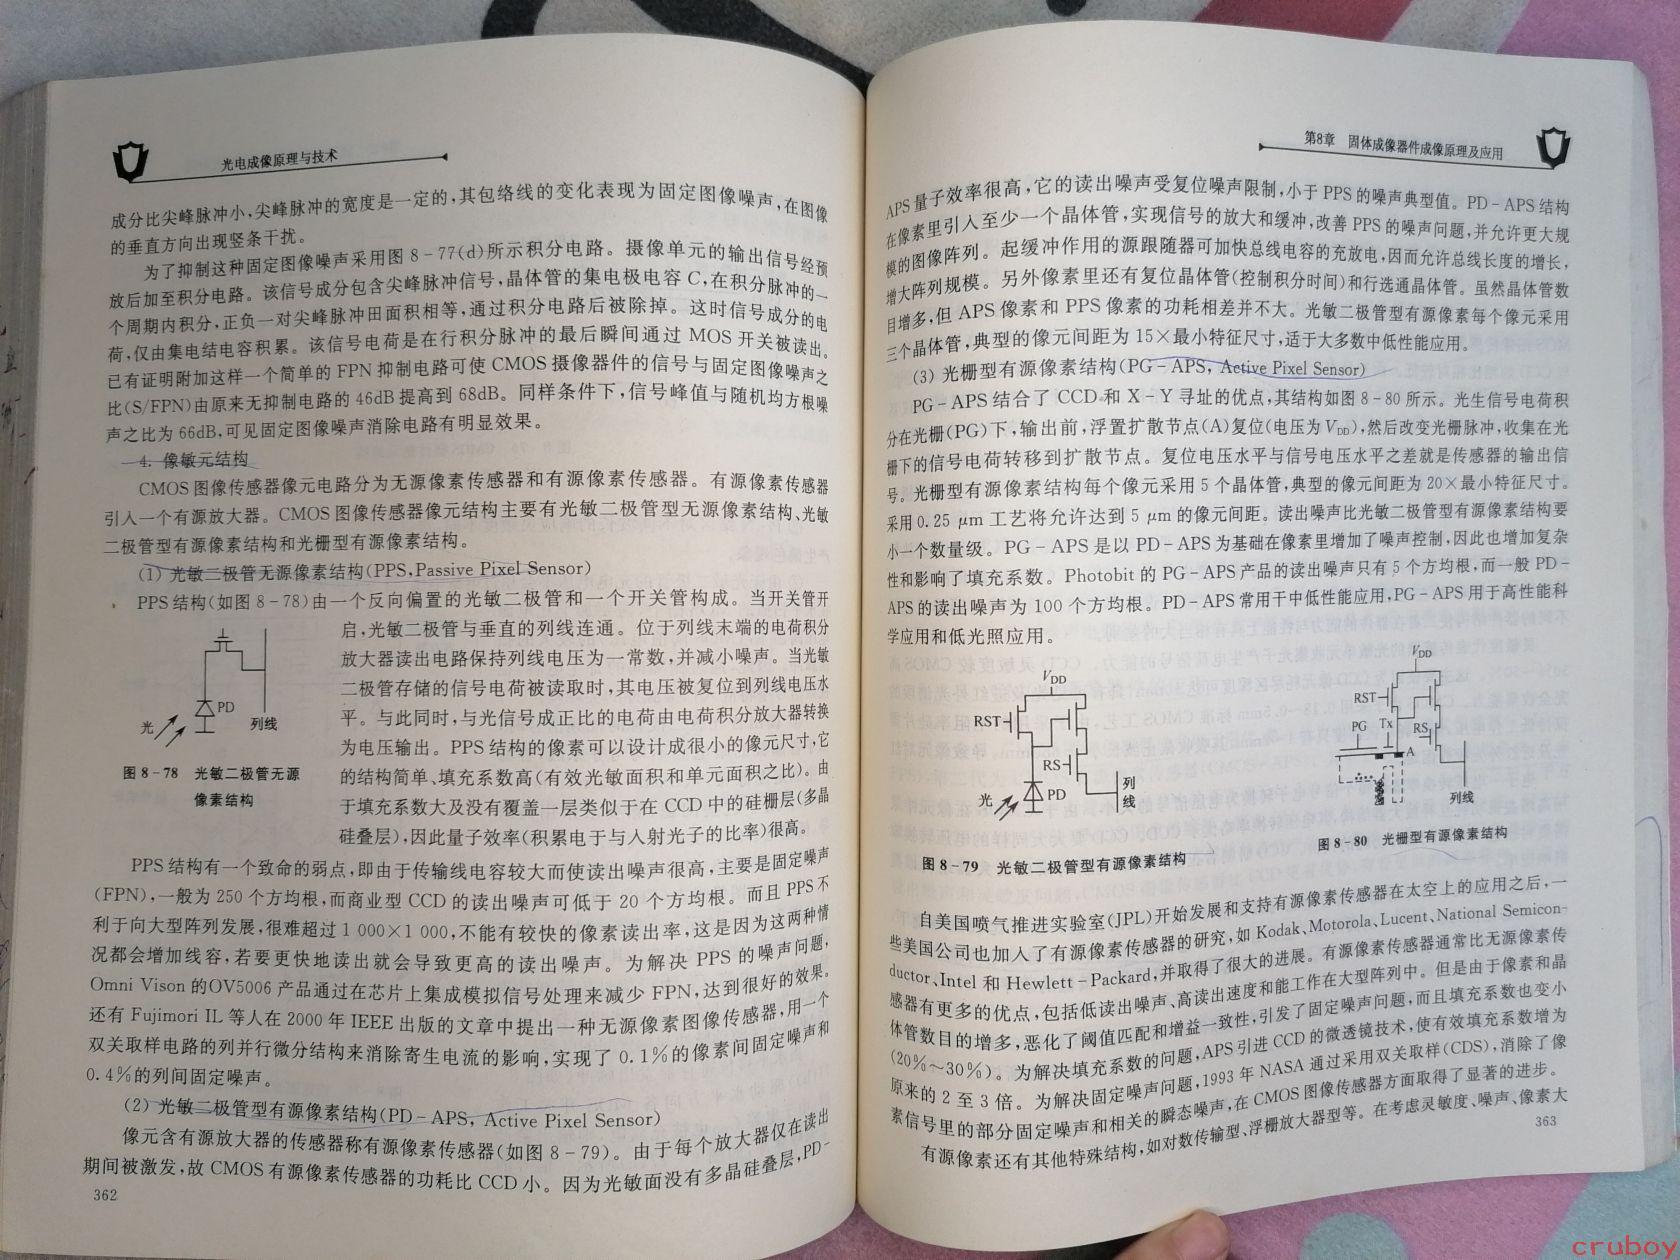 光电成像原理与技术
成分比尖峰脉冲小,尖峰脉冲的宽度是一定的,其包络线的变化表现为固定图像噪声,在图像
的垂直方向出现竖条干扰。
为了抑制这种固定图像噪声采用图 8-77(d)所示积分电路。摄像单元的输出信号经预
放后加至积分电路。该信号成分包含尖峰脉冲信号,晶体管的集电极电容 C,在积分脉冲的一
个周期内积分,正负一对尖峰脉冲由面积相等,通过积分电路后被除掉。这时信号成分的电
荷,仅由集电结电容积累。该信号电荷是在行积分脉冲的最后瞬间通过 MOS 开关被读出。
已有证明附加这样一个简单的 FPN 抑制电路可使 CMOS 摄像器件的信号与固定图像噪声之
比(S/FPN)由原来无抑制电路的 46dB 提高到 68dB。同样条件下,信号峰值与随机均方根噪
声之比为 66dB,可见固定图像噪声消除电路有明显效果。
4. 像敏元结构
CMOS 图像传感器像元电路分为无源像素传感器和有源像素传感器。有源像素传感器
引入一个有源放大器。CMOS 图像传感器像元结构主要有光敏二极管型无源像素结构、光敏
二极管型有源像素结构和光栅型有源像素结构。
(1) 光敏二极管无源像素结构(PPS,Passive Pixel Sensor)
PPS 结构(如图 8-78)由一个反向偏置的光敏二极管和一个开关管构成。当开关管开
启,光敏二极管与垂直的列线连通。位于列线末端的电荷积分
放大器读出电路保持列线电压为一常数,并减小噪声。当光敏
二极管存储的信号电荷被读取时,其电压被复位到列线电压水
平。与此同时,与光信号成正比的电荷由电荷积分放大器转换
为电压输出。PPS 结构的像素可以设计成很小的像元尺寸,它
的结构简单、填充系数高(有效光敏面积和单元面积之比)。由
于填充系数大及没有覆盖一层类似于在 CCD 中的硅栅层(多晶
硅叠层),因此量子效率(积累电于与入射光子的比率)很高。
PD
光
列线
图 8-78 光敏二极管无源
像素结构
PPS 结构有一个致命的弱点,即由于传输线电容较大而使读出噪声很高,主要是固定噪声
(FPN),一般为 250 个方均根,而商业型 CCD 的读出噪声可低于 20 个方均根。而且 PPS 不
利于向大型阵列发展,很难超过 1 000×1 000,不能有较快的像素读出率,这是因为这两种情
况都会增加线容,若要更快地读出就会导致更高的读出噪声。为解决 PPS 的噪声问题,
Omni Vison 的OV5006 产品通过在芯片上集成模拟信号处理来减少 FPN,达到很好的效果。
还有 Fujimori IL 等人在 2000 年 IEEE 出版的文章中提出一种无源像素图像传感器,用一个
双关取样电路的列并行微分结构来消除寄生电流的影响,实现了 0.1%的像素间固定噪声和
0.4%的列间固定噪声。
(2) 光敏二极管型有源像素结构(PD-APS, Active Pixel Sensor)
像元含有源放大器的传感器称有源像素传感器(如图 8-79)。由于每个放大器仅在读出
期间被激发,故 CMOS 有源像素传感器的功耗比 CCD 小。因为光敏面没有多晶硅叠层,PD-
362
第8章 固体成像器件成像原理及应用
APS 量子效率很高,它的读出噪声受复位噪声限制,小于 PPS 的噪声典型值。PD-APS 结构
在像素里引入至少一个晶体管,实现信号的放大和缓冲,改善 PPS 的噪声问题,并允许更大规
模的图像阵列。起缓冲作用的源跟随器可加快总线电容的充放电,因而允许总线长度的增长,
增大阵列规模。另外像素里还有复位晶体管(控制积分时间)和行选通晶体管。虽然晶体管数
目增多,但 APS 像素和 PPS 像素的功耗相差并不大。光敏二极管型有源像素每个像元采用
三个晶体管,典型的像元间距为 15×最小特征尺寸,适于大多数中低性能应用。
(3) 光栅型有源像素结构(PG-APS, Active Pixel Sensor)
PG-APS 结合了 CCD 和 X-Y 寻址的优点,其结构如图 8-80 所示。光生信号电荷积
分在光栅(PG)下,输出前,浮置扩散节点(A)复位(电压为 VDD),然后改变光栅脉冲,收集在光
栅下的信号电荷转移到扩散节点。复位电压水平与信号电压水平之差就是传感器的输出信
号。光栅型有源像素结构每个像元采用 5 个晶体管,典型的像元间距为 20×最小特征尺寸。
采用 0.25 μm 工艺将允许达到 5 μm 的像元间距。读出噪声比光敏二极管型有源像素结构要
小一个数量级。PG-APS 是以 PD-APS 为基础在像素里增加了噪声控制,因此也增加复杂
性和影响了填充系数。Photobit 的 PG-APS 产品的读出噪声只有 5 个方均根,而一般 PD-
APS 的读出噪声为 100 个方均根。PD-APS 常用于中低性能应用,PG-APS 用于高性能科
学应用和低光照应用。
VDD
RST
RS
PD
光
列线
图 8-79 光敏二极管型有源像素结构
VDD
RST
PG Tx
RS
A
列线
图 8-80 光栅型有源像素结构
自美国喷气推进实验室(JPL)开始发展和支持有源像素传感器在太空上的应用之后,一
些美国公司也加入了有源像素传感器的研究,如 Kodak、Motorola、Lucent、National Semicon-
ductor、Intel 和 Hewlett-Packard,并取得了很大的进展。有源像素传感器通常比无源像素传
感器有更多的优点,包括低读出噪声、高读出速度和能工作在大型阵列中。但是由于像素和晶
体管数目的增多,恶化了阈值匹配和增益一致性,引发了固定噪声问题,而且填充系数也变小
(20%～30%)。为解决填充系数的问题,APS 引进 CCD 的微透镜技术,使有效填充系数增为
原来的 2 至 3 倍。为解决固定噪声问题,1993 年 NASA 通过采用双关取样(CDS),消除了像
素信号里的部分固定噪声和相关的瞬态噪声,在 CMOS 图像传感器方面取得了显著的进步。
有源像素还有其他特殊结构,如对数传输型、浮栅放大器型等。在考虑灵敏度、噪声、像素大
363
cruboy